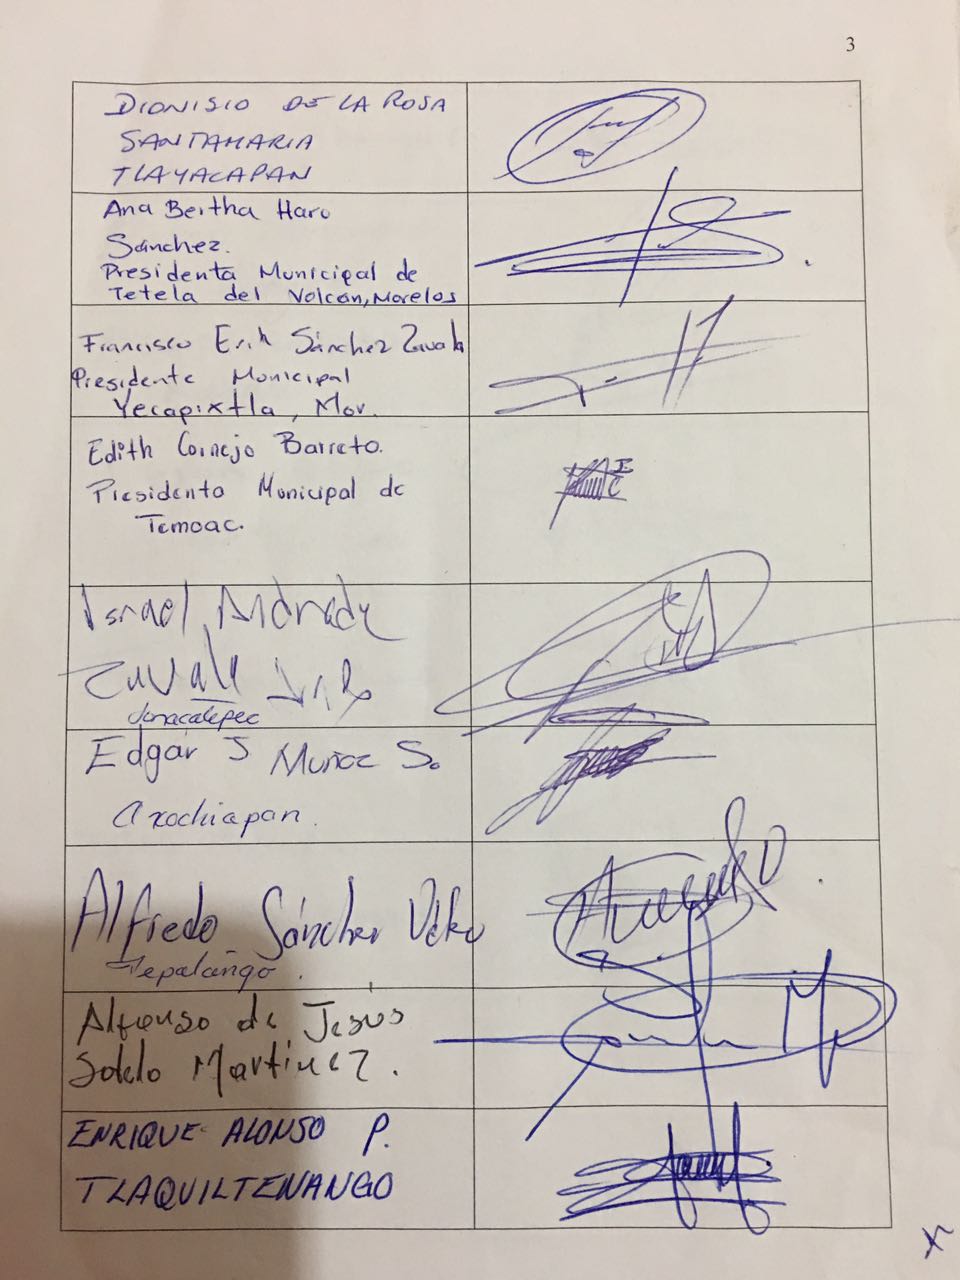 3
DIONISIO DE LA ROSA
SANTAMARIA
TLAYACAPAN
Ana Bertha Haro
Sánchez.
Presidenta Municipal de
Tetela del Volcán, Morelos
Francisco Erik Sánchez Zavala
Presidente Municipal
Yecapixtla, Mor.
Edith Cornejo Barreto.
Presidenta Municipal de
Temoac.
Israel Andrade
Zavala
Jonacatepec
Edgar J Muñoz S.
Axochiapan.
Alfredo Sánchez Vélez
Tepalcingo.
Alfonso de Jesus
Sotelo Martinez.
ENRIQUE ALONSO P.
TLAQUILTENANGO